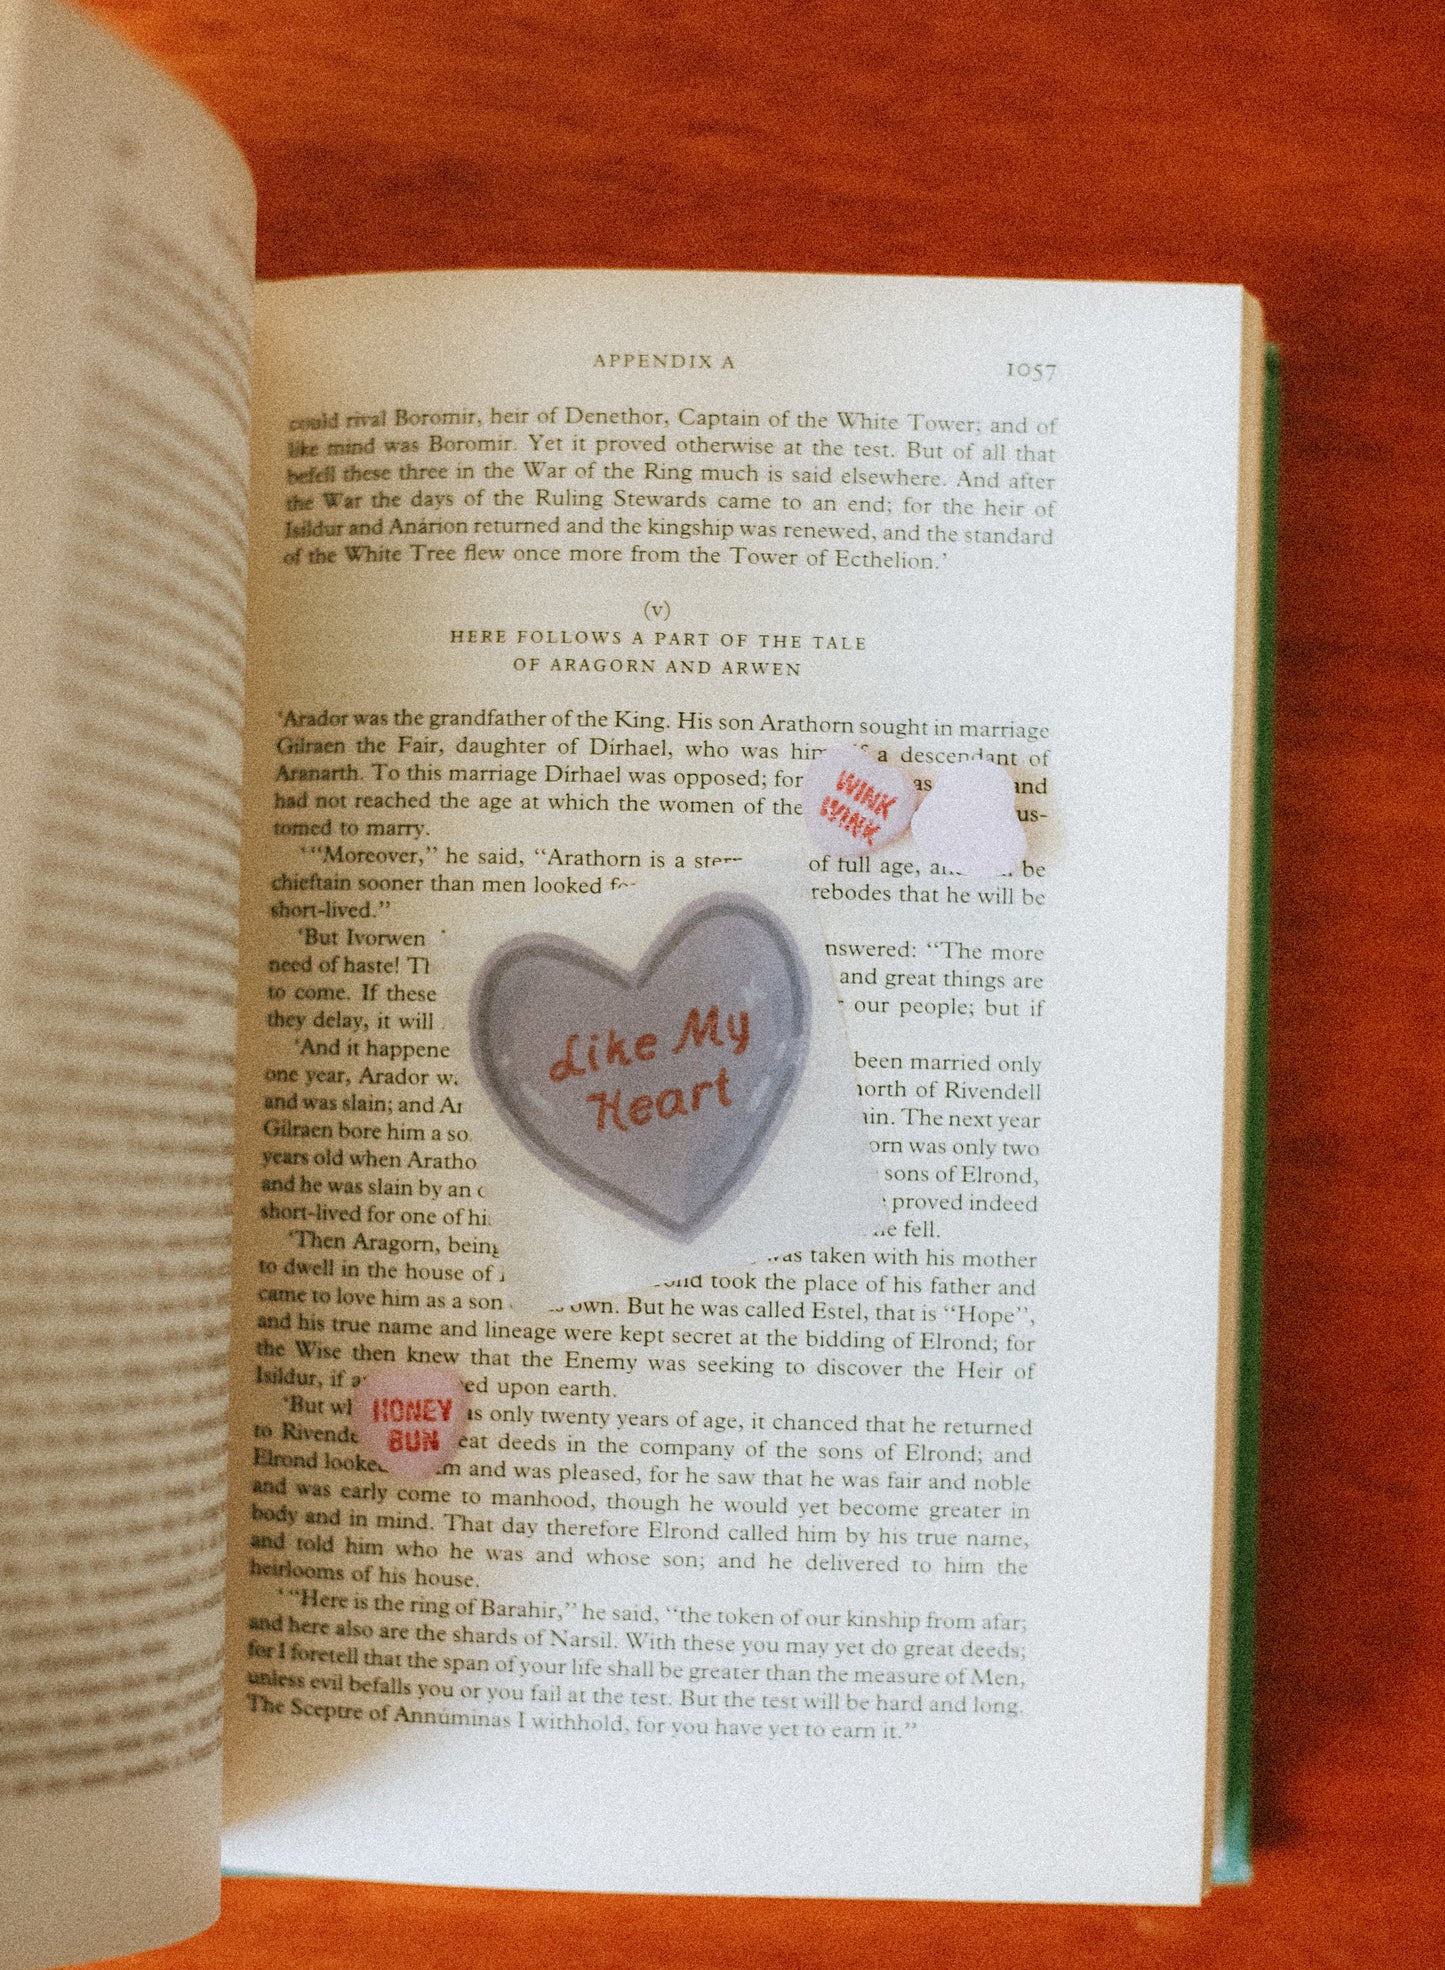 APPENDIX A 1057
could rival Boromir, heir of Denethor, Captain of the White Tower; and of
like mind was Boromir. Yet it proved otherwise at the test. But of all that
befell these three in the War of the Ring much is said elsewhere. And after
the War the days of the Ruling Stewards came to an end; for the heir of
Isildur and Anárion returned and the kingship was renewed, and the standard
of the White Tree flew once more from the Tower of Ecthelion.’
(v)
HERE FOLLOWS A PART OF THE TALE
OF ARAGORN AND ARWEN
‘Arador was the grandfather of the King. His son Arathorn sought in marriage
Gilraen the Fair, daughter of Dírhael, who was a descendant of
Aranarth. To this marriage Dírhael was opposed; for and
had not reached the age at which the women of the us-
tomed to marry.
‘“Moreover,” he said, “Arathorn is a of full age, be
chieftain sooner than men looked rebodes that he will be
short-lived.”
‘But Ivorwen nswered: “The more
need of haste! and great things are
to come. If these our people; but if
they delay, it will
‘And it happene been married only
one year, Arador north of Rivendell
and was slain; and The next year
Gilraen bore him a so orn was only two
years old when Aratho sons of Elrond,
and he was slain by an proved indeed
short-lived for one of fell.
‘Then Aragorn, being was taken with his mother
to dwell in the house of took the place of his father and
came to love him as a son own. But he was called Estel, that is “Hope”,
and his true name and lineage were kept secret at the bidding of Elrond; for
the Wise then knew that the Enemy was seeking to discover the Heir of
Isildur, if ed upon earth.
‘But only twenty years of age, it chanced that he returned
to eat deeds in the company of the sons of Elrond; and
Elrond looked and was pleased, for he saw that he was fair and noble
and was early come to manhood, though he would yet become greater in
body and in mind. That day therefore Elrond called him by his true name,
and told him who he was and whose son; and he delivered to him the
heirlooms of his house.
‘“Here is the ring of Barahir,” he said, “the token of our kinship from afar;
and here also are the shards of Narsil. With these you may yet do great deeds;
for I foretell that the span of your life shall be greater than the measure of Men,
unless evil befalls you or you fail at the test. But the test will be hard and long.
The Sceptre of Annúminas I withhold, for you have yet to earn it.”
WINK
WINK
Like My
Heart
HONEY
BUN